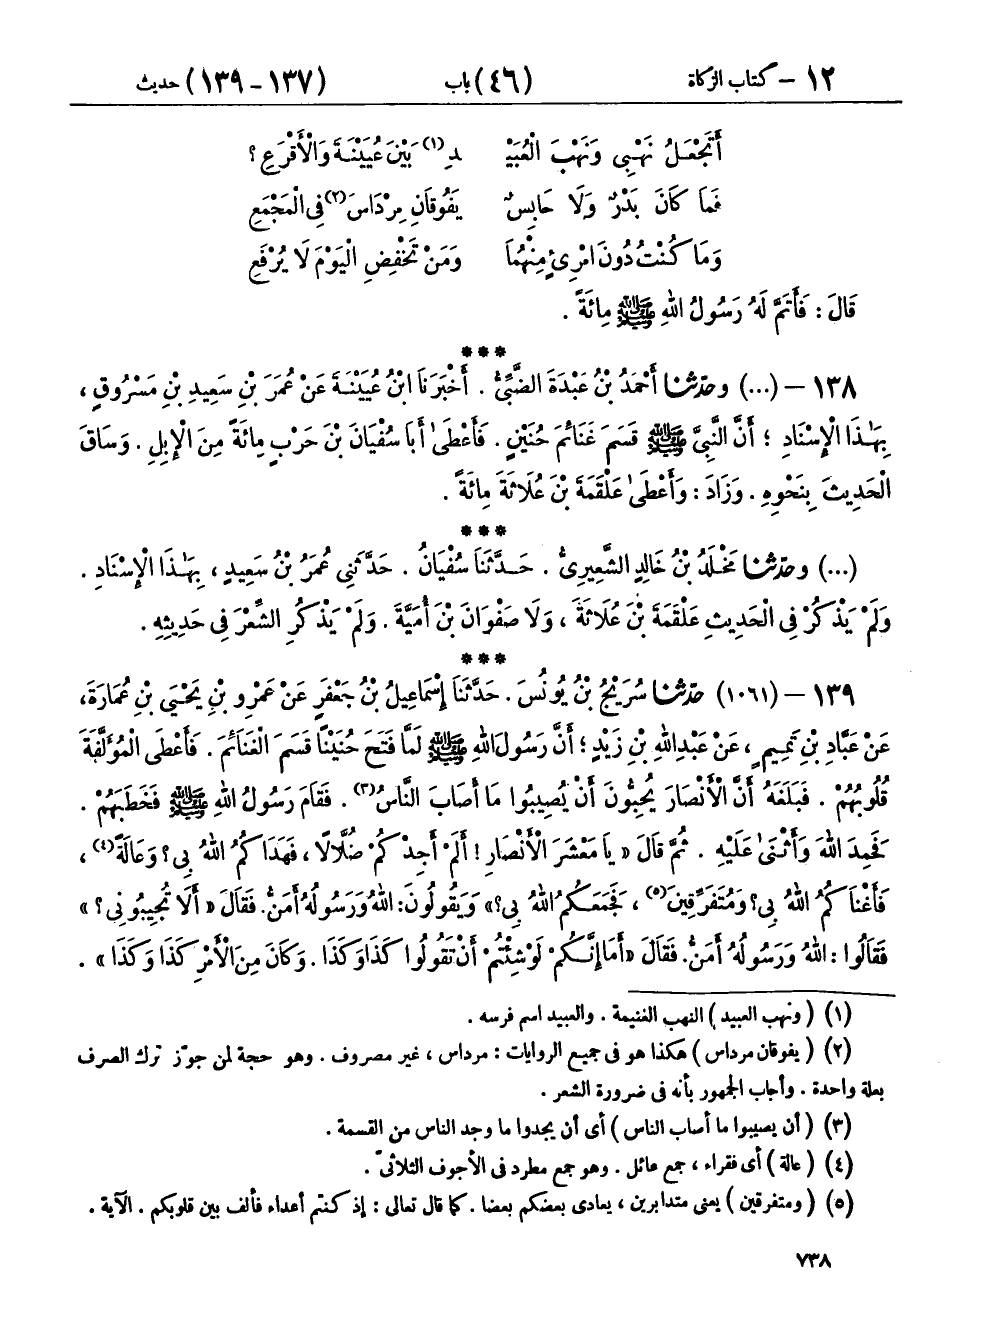 ١٢ – كتاب الزكاة (٤٦) باب (١٣٧ – ١٣٩) حديث
أَتَجْعَلُ نَهْبِى وَنَهْبَ الْعُبَيْـ ـدِ(١) بَيْنَ عُيَيْنَةَ وَالْأَقْرَعِ ؟
فَمَا كَانَ بَدْرٌ وَلَا حَابِسٌ يَفُوقَانِ مِرْدَاسَ(٢) فِى الْمَجْمَعِ
وَمَا كُنْتُ دُونَ امْرِئٍ مِنْهُمَا وَمَنْ تَخْفِضِ الْيَوْمَ لَا يُرْفَعِ
قَالَ : فَأَتَمَّ لَهُ رَسُولُ اللهِ ﷺ مِائَةً .
***
١٣٨ – (...) وحدّثنا أَحْمَدُ بْنُ عَبْدَةَ الضَّبِّىُّ . أَخْبَرَنَا ابْنُ عُيَيْنَةَ عَنْ عُمَرَ بْنِ سَعِيدِ بْنِ مَسْرُوقٍ ،
بِهَٰذَا الْإِسْنَادِ ؛ أَنَّ النَّبِىَّ ﷺ قَسَمَ غَنَائِمَ حُنَيْنٍ . فَأَعْطَىٰ أَبَا سُفْيَانَ بْنَ حَرْبٍ مِائَةً مِنَ الْإِبِلِ . وَسَاقَ
الْحَدِيثَ بِنَحْوِهِ . وَزَادَ : وَأَعْطَىٰ عَلْقَمَةَ بْنَ عُلَاثَةَ مِائَةً .
***
(...) وحدّثنا مَخْلَدُ بْنُ خَالِدٍ الشَّعِيرِىُّ . حَدَّثَنَا سُفْيَانُ . حَدَّثَنِى عُمَرُ بْنُ سَعِيدٍ ، بِهَٰذَا الْإِسْنَادِ .
وَلَمْ يَذْكُرْ فِى الْحَدِيثِ عَلْقَمَةَ بْنَ عُلَاثَةَ ، وَلَا صَفْوَانَ بْنَ أُمَيَّةَ . وَلَمْ يَذْكُرِ الشِّعْرَ فِى حَدِيثِهِ .
***
١٣٩ – (١٠٦١) حدّثنا سُرَيْجُ بْنُ يُونُسَ . حَدَّثَنَا إِسْمَاعِيلُ بْنُ جَعْفَرٍ عَنْ عَمْرِو بْنِ يَحْيَى بْنِ عُمَارَةَ،
عَنْ عَبَّادِ بْنِ تَمِيمٍ ، عَنْ عَبْدِ اللهِ بْنِ زَيْدٍ ؛ أَنَّ رَسُولَ اللهِ ﷺ لَمَّا فَتَحَ حُنَيْنًا قَسَمَ الْغَنَائِمَ . فَأَعْطَى الْمُؤَلَّفَةَ
قُلُوبُهُمْ . فَبَلَغَهُ أَنَّ الْأَنْصَارَ يُحِبُّونَ أَنْ يُصِيبُوا مَا أَصَابَ النَّاسُ(٣) . فَقَامَ رَسُولُ اللهِ ﷺ فَخَطَبَهُمْ .
فَحَمِدَ اللهَ وَأَثْنَىٰ عَلَيْهِ . ثُمَّ قَالَ « يَا مَعْشَرَ الْأَنْصَارِ ! أَلَمْ أَجِدْكُمْ ضُلَّالًا ، فَهَدَاكُمُ اللهُ بِى ؟ وَعَالَةً(٤) ،
فَأَغْنَاكُمُ اللهُ بِى ؟ وَمُتَفَرِّقِينَ(٥) ، فَجَمَعَكُمُ اللهُ بِى ؟ » وَيَقُولُونَ : اللهُ وَرَسُولُهُ أَمَنُّ. فَقَالَ « أَلَا تُجِيبُونِى ؟ »
فَقَالُوا : اللهُ وَرَسُولُهُ أَمَنُّ. فَقَالَ « أَمَا إِنَّكُمْ لَوْ شِئْتُمْ أَنْ تَقُولُوا كَذَا وَكَذَا . وَكَانَ مِنَ الْأَمْرِ كَذَا وَكَذَا » .
(١) ( ونهب العبيد ) النهب الغنيمة . والعبيد اسم فرسه .
(٢) ( يفوقان مرداس ) هكذا هو فى جميع الروايات : مرداس ، غير مصروف . وهو حجة لمن جوّز ترك الصرف
بعلة واحدة . وأجاب الجمهور بأنه فى ضرورة الشعر .
(٣) ( أن يصيبوا ما أصاب الناس ) أى أن يجدوا ما وجد الناس من القسمة .
(٤) ( عالة ) أى فقراء ، جمع عائل . وهو جمع مطرد فى الأجوف الثلاثىّ .
(٥) ( ومتفرقين ) يعنى متدابرين ، يعادى بعضكم بعضا . كما قال تعالى : إذ كنتم أعداء فألف بين قلوبكم . الآية .
٧٣٨